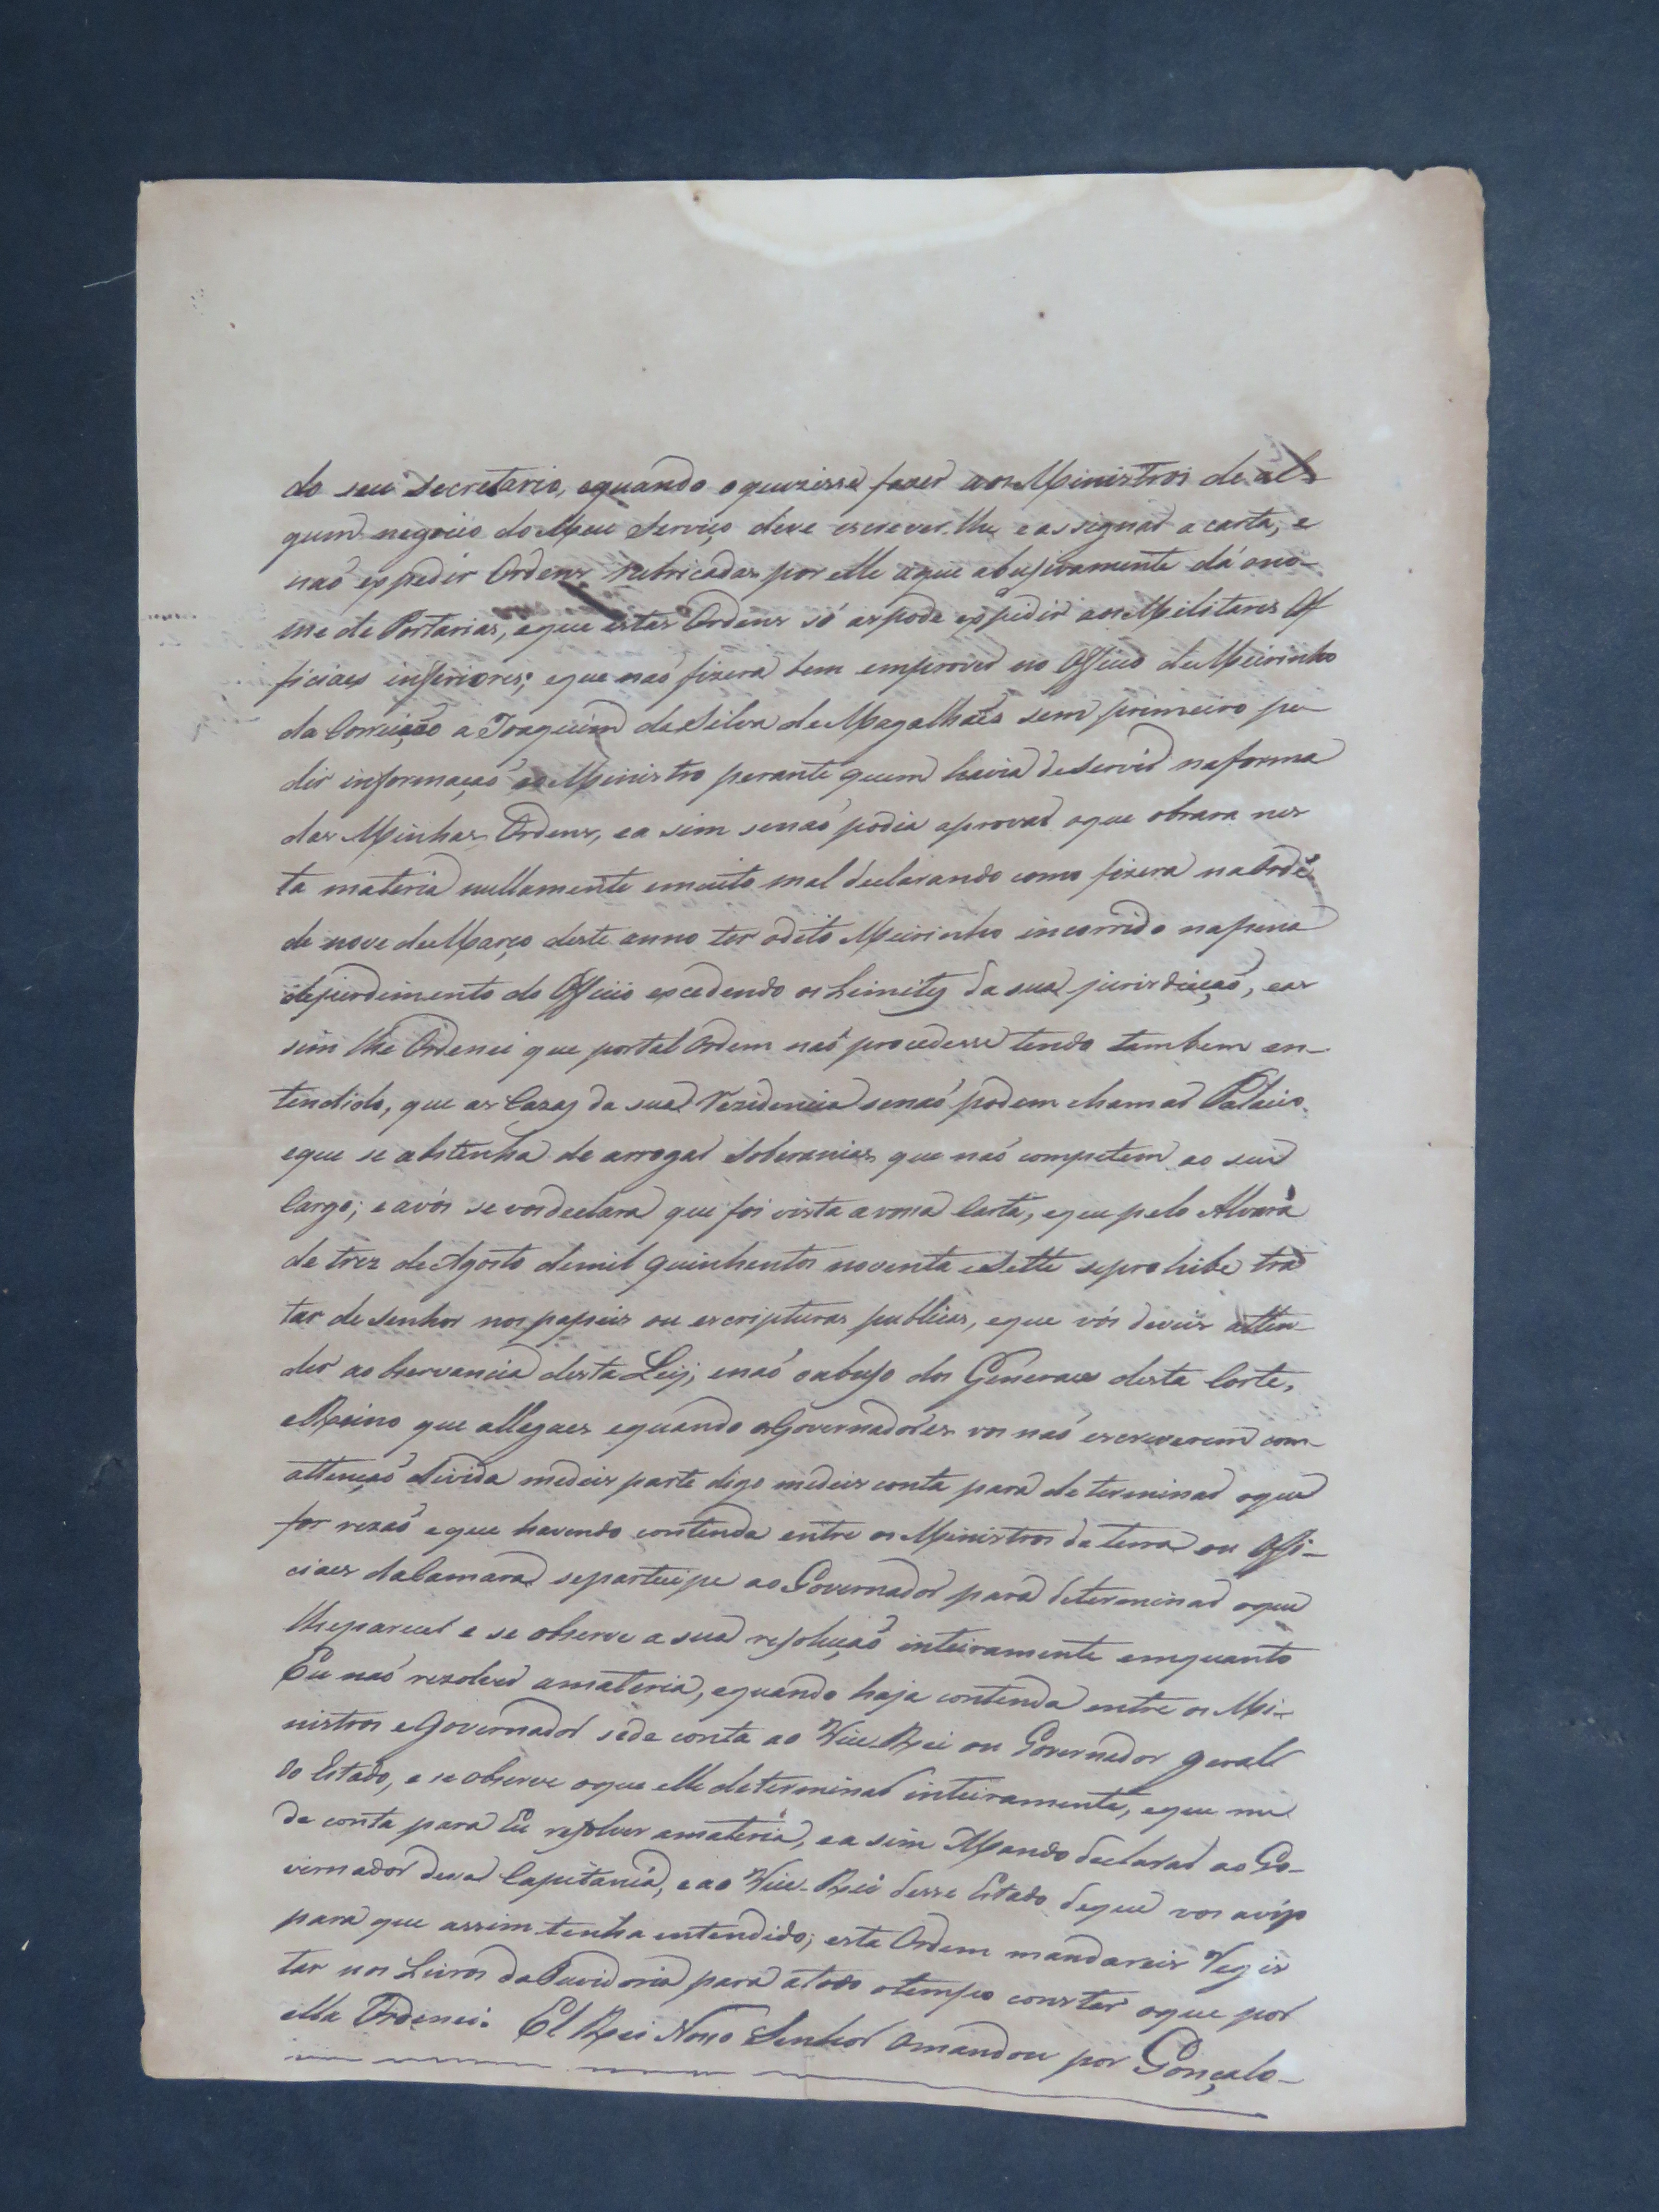 do seu Secretario, equando oquizesse fazer aos Ministros de al
gum negocio do Meu Serviço deve escrever-lhe e assignar a carta, e
naõ expedir Ordens rubricadas por elle aque abusivamente dá ono-
me de Portarias, eque estas Ordens só aspode expedir aos Militares Of
ficiaes inferiores; eque naõ fizera bem emprover no Officio de Meirinho
da Correiçaõ a Joaquim da Silva de Magalhaẽs sem primeiro pe-
dir informaçaõ ao Ministro perante quem havia deservir naforma
das Minhas Ordens, ea sim senaõ podia aprovar oque obrara nes
ta materia nullamente emuito mal declarando como fizera naOrdẽ
de nove de Março deste anno ter odito Meirinho incorrido napena
deperdimento do Officio excedendo os Limites da sua jurisdicçaõ, eas
sim lhe Ordenei que portal Ordem naõ procedesse tendo tambem en-
tendido, que as Cazas da sua Rezidencia senaõ podem chamar Palacio,
eque se abstenha de arrogar Soberanias que naõ competem ao seu
Cargo; e avós se vos declara que foi vista a vossa Carta, eque pelo Alvará
de trez de Agosto demil quinhentos noventa eSette seprohibe tra
tar de Senhor nos papeis ou escripturas publicas, eque vós deveis atten-
der ao bservancia desta Leij, enaõ oabuso dos Generaes desta Corte,
eReino que allegaes equando osGovernadores vos naõ escreverem com-
attençaõ divida medeis parte digo medeis conta para determinar oque
for rezaõ eque havendo contenda entre os Ministros da terra ou Offi-
ciaes daCamara separticipe ao Governador para determinar oque
lheparecer e se observe a sua resoluçaõ inteiramente emquanto
Eu naõ rezolver amateria, equando haja contenda entre os Mi-
nistros eGovernador sede conta ao Vice Rei ou Governador geral
do Estado, e se observe oque elle determinar inteiramente, eque me
de conta para Eu resolver amateria, ea sim Mando declarar ao Go-
vernador dessa Capitania, eao Vice-Rei desse Estado deque vos aviso
para que assim tenha entendido; esta Ordem mandareis Regis
tar nos Livros daOuvidoria para atodo otempo constar oque por
ella Ordenei. El Rei Nosso Senhor Omandou por Gonçalo-